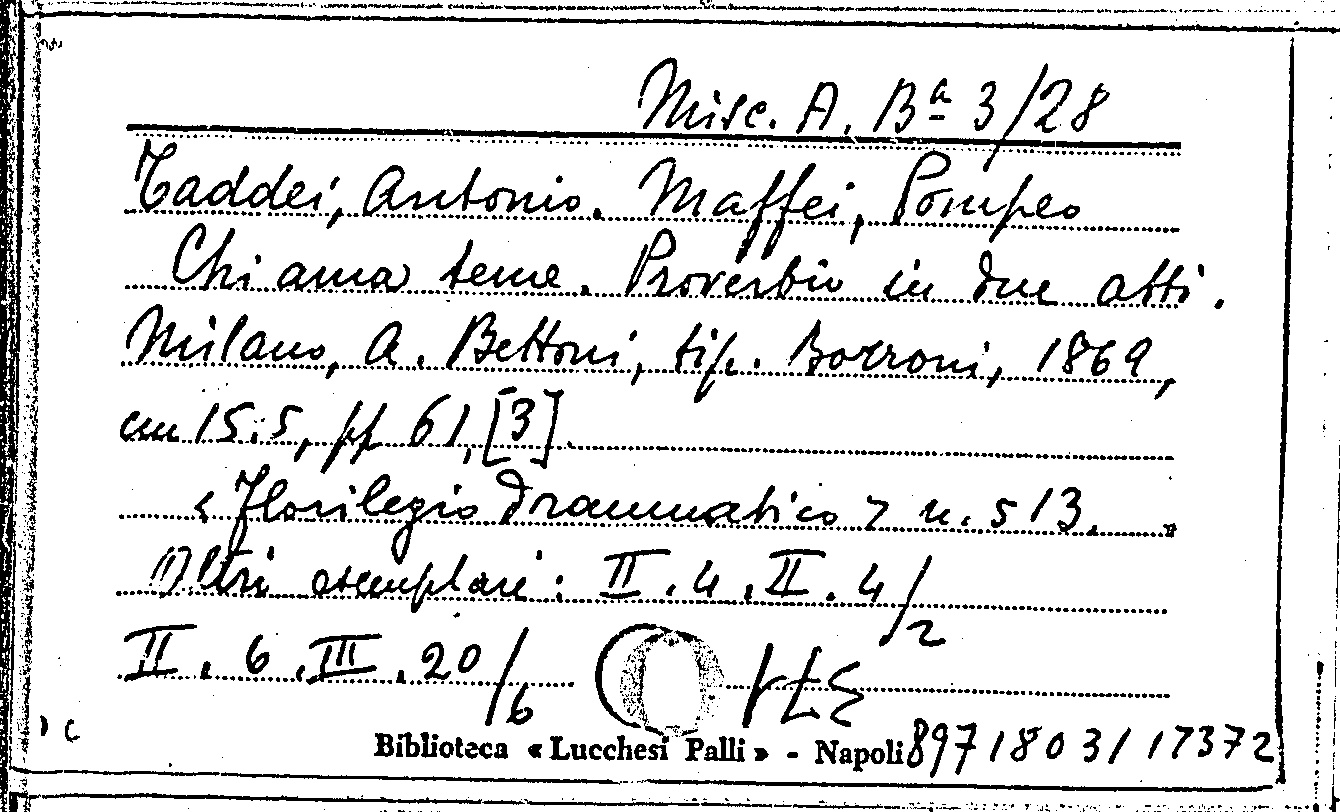 Misc. A. Bª 3/28
Taddei, Antonio. Maffei, Pompeo
Chi ama teme. Proverbio in due atti.
Milano, A. Bettoni, tip. Borroni, 1869,
cm 15.5, pp 61, [3].
«Florilegio drammatico» n. 513.
Altri esemplari: II. 4. II. 4/2
II. 6. III. 20/6
Biblioteca « Lucchesi Palli » - Napoli 89718031 17372